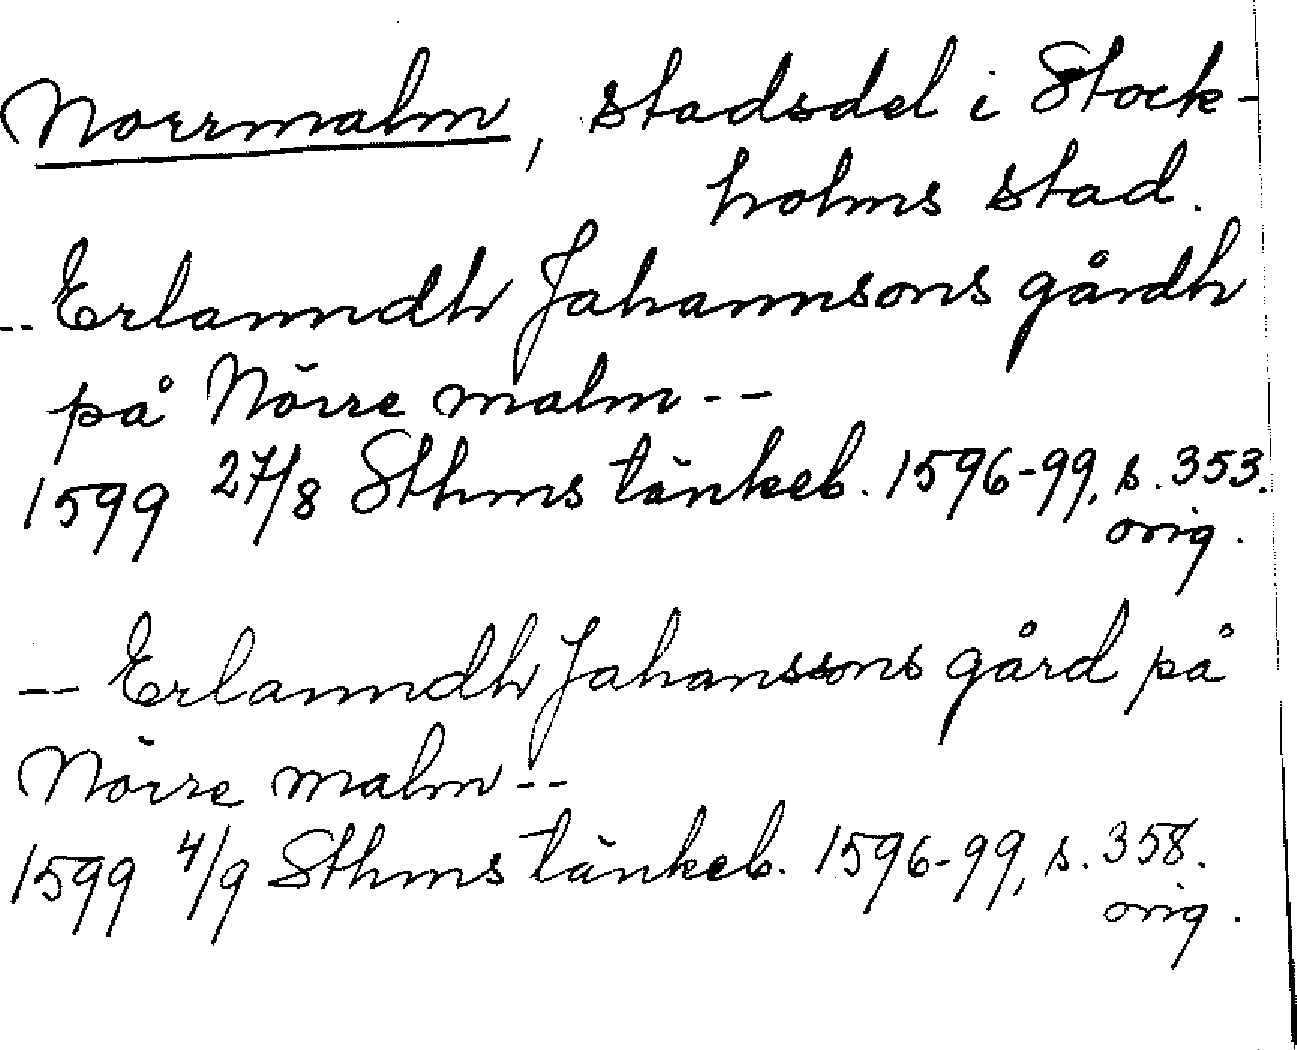 Norrmalm, stadsdel i Stock-
holms stad.
-- Erlanndh Jahannsons gårdh
på Nörre malm --
1599 27/8 Sthms tänkeb. 1596-99, s. 353.
orig.
-- Erlanndh Jahanssons gård på
Nörre malm --
1599 4/9 Sthms tänkeb. 1596-99, s. 358.
orig.